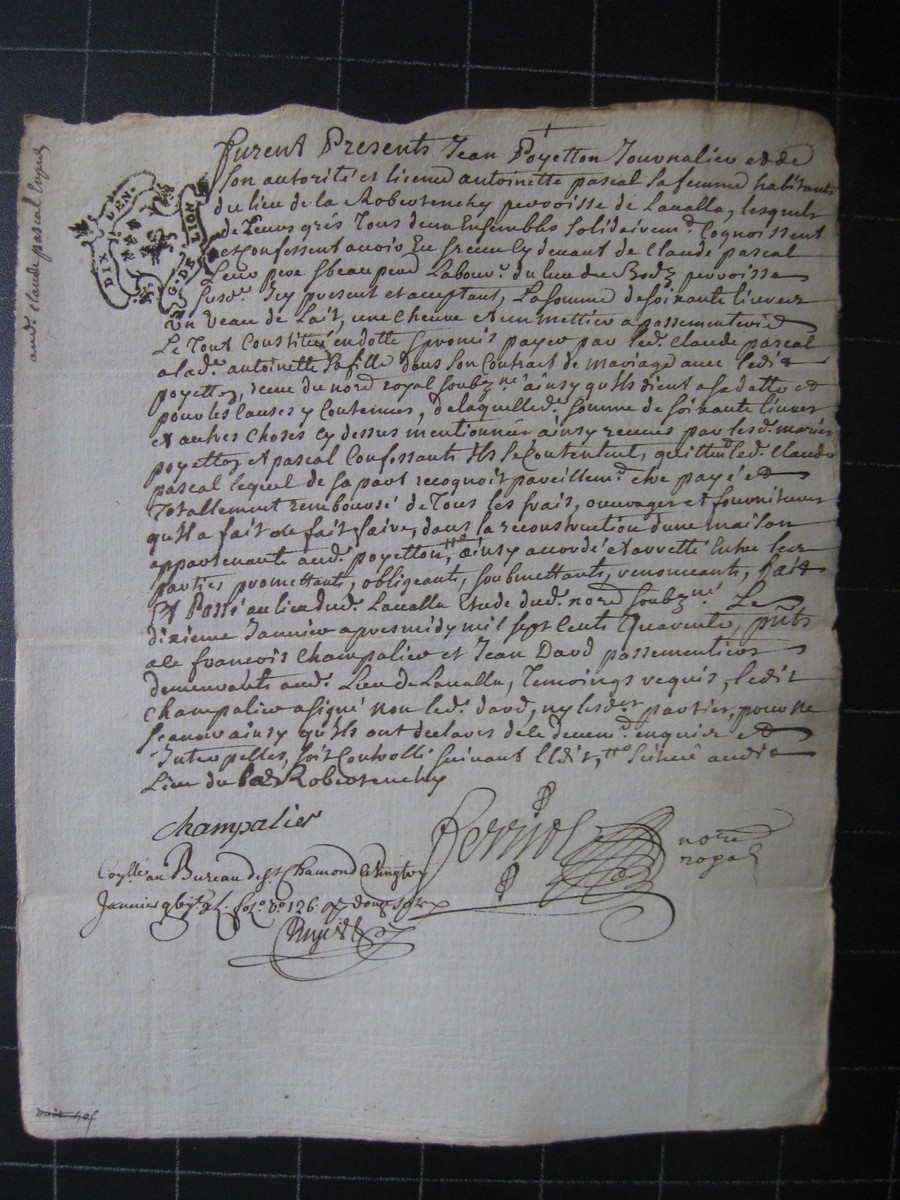 furent Presents Jean Poyetton Journalier et de
Son autorité et licence antoinette pascal Sa femme habitants
du lieu de la Robertenchy perroisse de Lavalla, lesquels
de Leurs grés Tous deux Ensembles Solidairemt. Cognoissent
et Confessent avoir Eu Receu Cy devant de Claude pascal
Leur pere & beau pere Labour. du lieu du perroisse
Susd. Icy present et aceptant, La somme de soixante livres
Un veau de Lait, une chevre et un mettier a passementerie
Le Tout Constitué en dotte & promis payer par led. Claude pascal
a lad. antoinette Sa fille dans Son Contract de mariage avec ledit
poyetton, receu du nore royal Soubzné. ainsy qu'ils dient a sa datte et
pour les Causes y Contenues, de laquelle d. somme de soixante livres
et autres choses Cy dessus mentionnées ainsy receues par lesd. mariés
poyetton et pascal Confessants Ils se Contentent, quittent led. Claude
pascal lequel de sa part recognoit pareillemt. etre payé et
Totallement remboursé de Tous les frais, ouvrages et fournitures
qu'il a fait ou fait faire, dans la reconstruction d'une maison
appartenante aud. poyetton, ainsy accordé et arretté Entre les
parties, promettants, obligeants, soubmettants, renonceants, fait
Et Passé au lieu dud. Lavalla Etude dud. nore Soubzné. Le
dixieme Janvier apres midy mil sept Cents Quarente, pnts
a Ce francois Champalier et Jean David passementiers
demeurants aud. Lieu de Lavalla, Temoings requis, ledit
Champalier a signé non led. david, ny lesdes parties, pour ne
Scavoir ainsy qu'ils ont declarés de le de enquis et
Interpelles, soit Controllé suivant l'Edit, audit
Lieu du Robertenchy
Champalier
nore
royal
Collé au Bureau de St Chamond le vingt
Janvier fo. vo. 126. douze sols
aud. claude pascal
DIX DEN.
G. DE LION